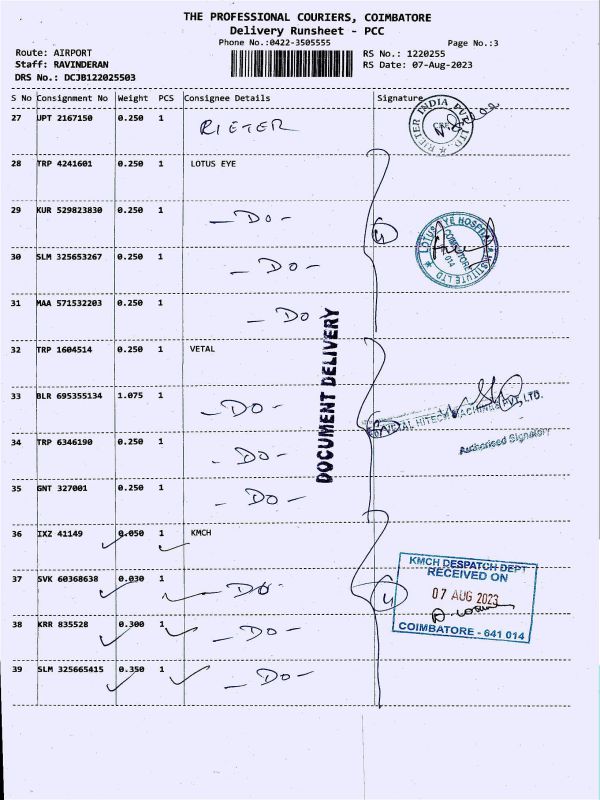 THE PROFESSIONAL COURIERS, COIMBATORE
Delivery Runsheet - PCC
Phone No.:0422-3505555
Page No.:3
Route: AIRPORT
RS No.: 1220255
Staff: RAVINDERAN
RS Date: 07-Aug-2023
DRS No.: DCJB122025503
S No Consignment No Weight PCS Consignee Details Signature
27 JPT 2167150 0.250 1 RIETER
RIETER INDIA PVT. LTD.
28 TRP 4241601 0.250 1 LOTUS EYE
29 KUR 529823830 0.250 1 - Do -
4
LOTUS EYE HOSPITAL & INSTITUTE LTD
COIMBATORE
014
30 SLM 325653267 0.250 1 - Do -
31 MAA 571532203 0.250 1 - Do
DOCUMENT DELIVERY
32 TRP 1604514 0.250 1 VETAL
33 BLR 695355134 1.075 1 - Do -
VETAL HITECH MACHINES PVT. LTD.
Authorised Signatory
34 TRP 6346190 0.250 1 - Do -
35 GNT 327001 0.250 1 - Do -
36 IXZ 41149 0.050 1 KMCH
37 SVK 60368638 0.030 1 - Do -
4
KMCH DESPATCH DEPT
RECEIVED ON
07 AUG 2023
COIMBATORE - 641 014
38 KRR 835528 0.300 1 - Do -
39 SLM 325665415 0.350 1 - Do -